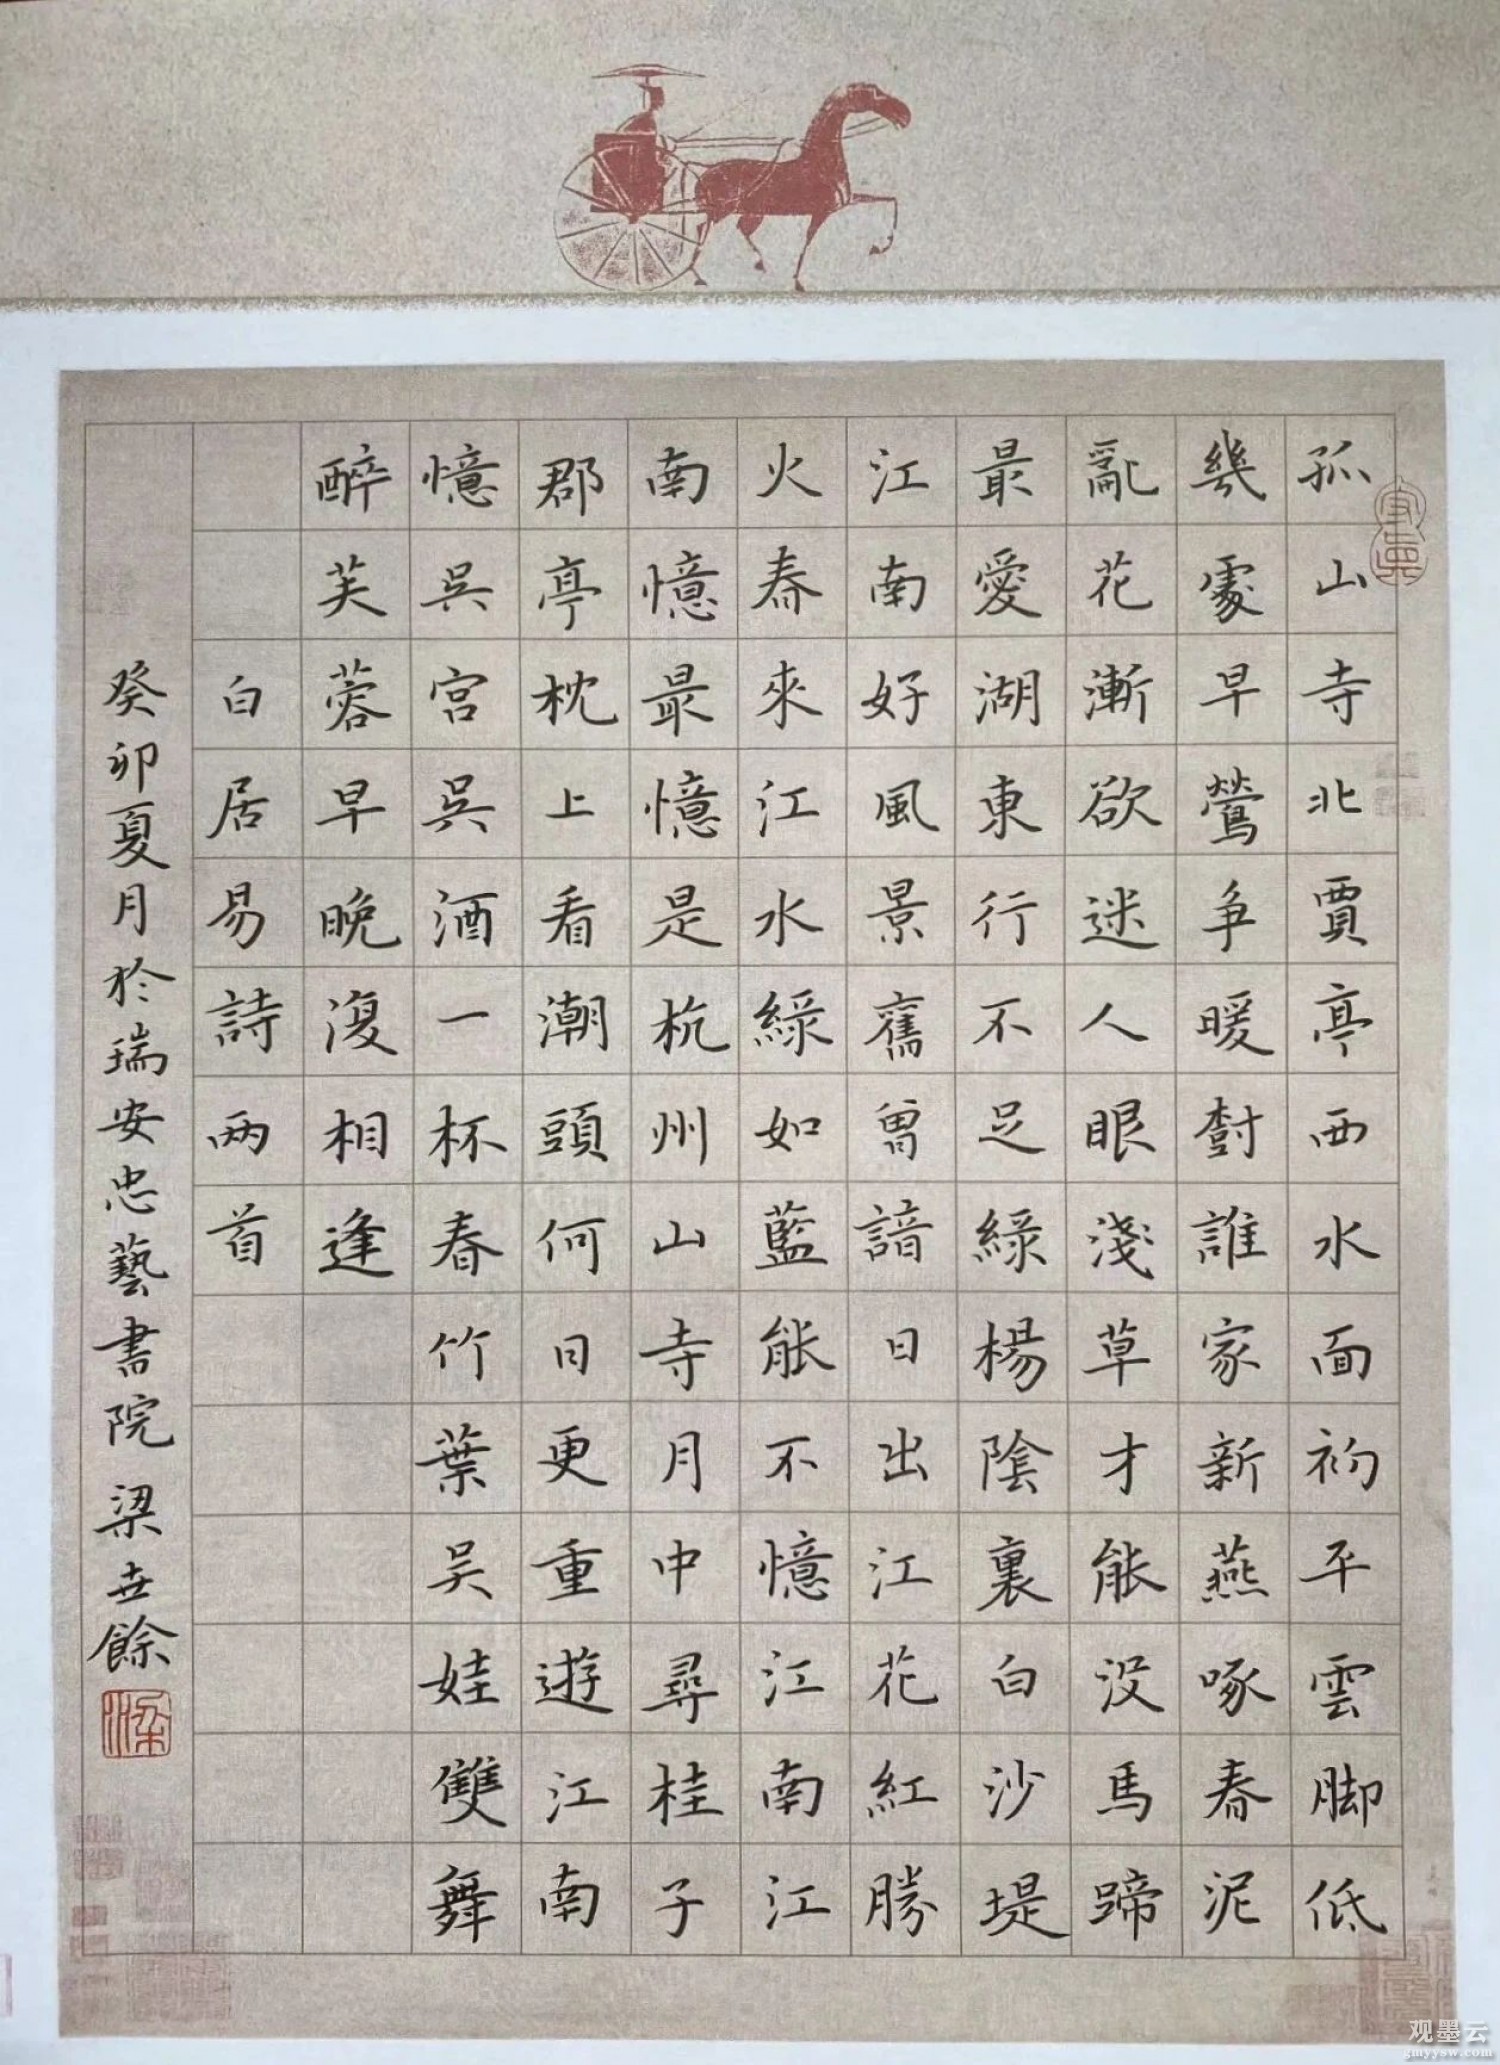 孤山寺北賈亭西水面初平雲脚低
幾處早鶯争暖樹誰家新燕啄春泥
亂花漸欲迷人眼淺草才能没馬蹄
最愛湖東行不足綠楊陰裏白沙堤
江南好風景舊曾諳日出江花紅勝
火春來江水綠如藍能不憶江南江
南憶最憶是杭州山寺月中尋桂子
郡亭枕上看潮頭何日更重遊江南
憶吳宮吳酒一杯春竹葉吴娃雙舞
醉芙蓉早晚復相逢
白居易詩兩首
癸卯夏月於瑞安忠藝書院梁世餘
梁
观墨云
gmyysw.com